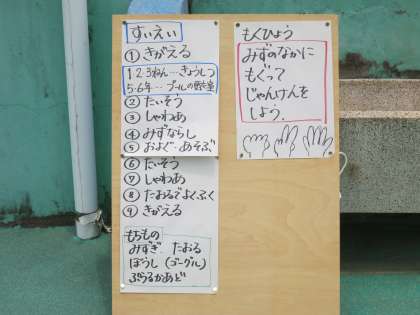 すいえい
① きがえる
1・2・3ねん…きょうしつ
5・6年…プールの更衣室
② たいそう
③ しゃわあ
④ みずならし
⑤ およぐ・あそぶ
⑥ たいそう
⑦ しゃわあ
⑧ たおるでよくふく
⑨ きがえる
もちもの
みずぎ たおる
ぼうし (ゴーグル)
ぷうるかあど
もくひょう
みずのなかに
もぐって
じゃんけんを
しよう。